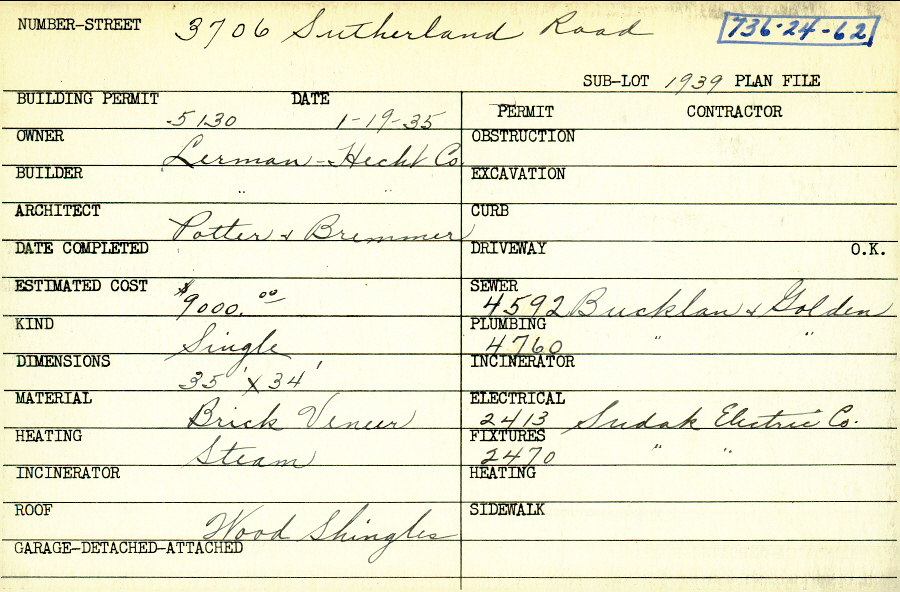 NUMBER-STREET 3706 Sutherland Road 736-24-62
SUB-LOT 1939 PLAN FILE
BUILDING PERMIT DATE
5130 1-19-35
OWNER
Lerman-Hecht Co.
BUILDER
" "
ARCHITECT
Potter & Bremmer
DATE COMPLETED
ESTIMATED COST
$9000.00
KIND
Single
DIMENSIONS
35' x 34'
MATERIAL
Brick Veneer
HEATING
Steam
INCINERATOR
ROOF
Wood Shingles
GARAGE-DETACHED-ATTACHED
PERMIT CONTRACTOR
OBSTRUCTION
EXCAVATION
CURB
DRIVEWAY O.K.
SEWER
4592 Bucklan & Golden
PLUMBING
4760 " "
INCINERATOR
ELECTRICAL
2413 Sudak Electric Co.
FIXTURES
2470 " "
HEATING
SIDEWALK